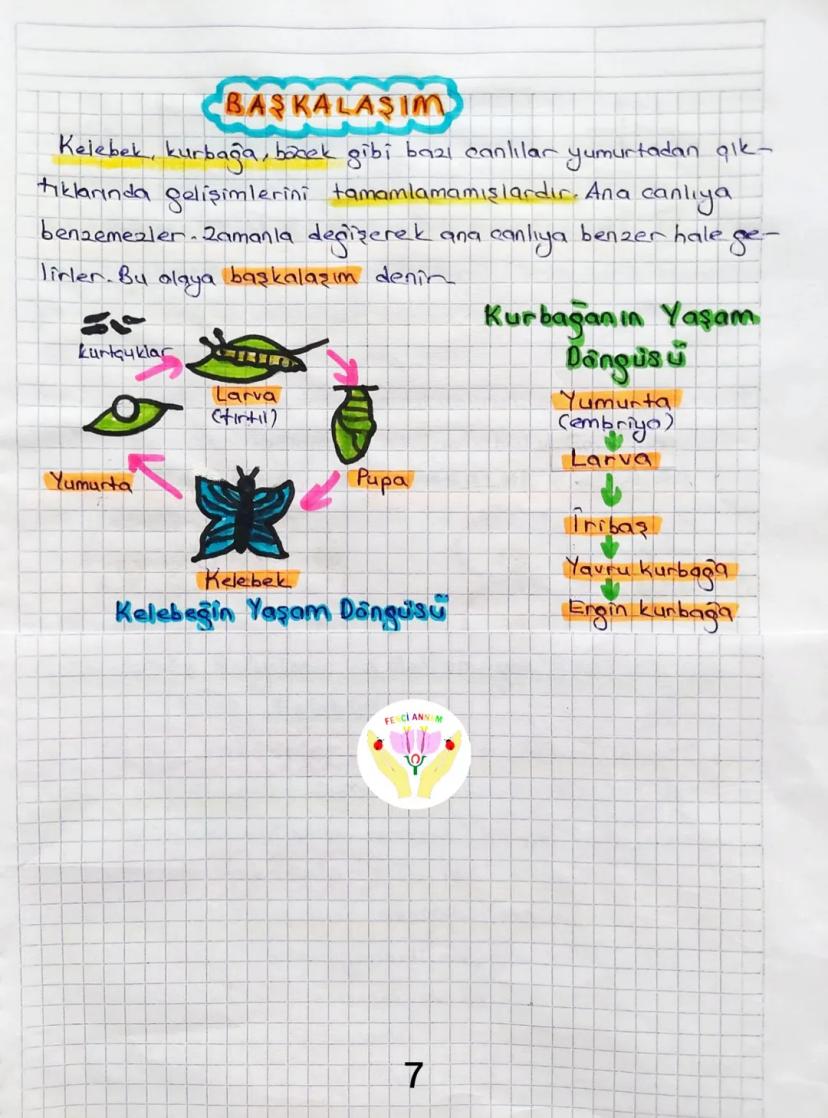 BAŞKALAŞIM
Kelebek, kurbağa, böcek gibi bazı canlılar yumurtadan çık-
tıklarında gelişimlerini tamamlamamışlardır. Ana canlıya
benzemezler. Zamanla değişerek ana canlıya benzer hale ge-
lirler. Bu olaya başkalaşım denir.
kurtçuklar
Larva
(tırtıl)
Pupa
Yumurta
Kelebek
Kelebeğin Yaşam Döngüsü
Kurbağanın Yaşam
Döngüsü
Yumurta
(embriyo)
Larva
İribaş
Yavru kurbağa
Ergin kurbağa
FENCİ ANNEM
7